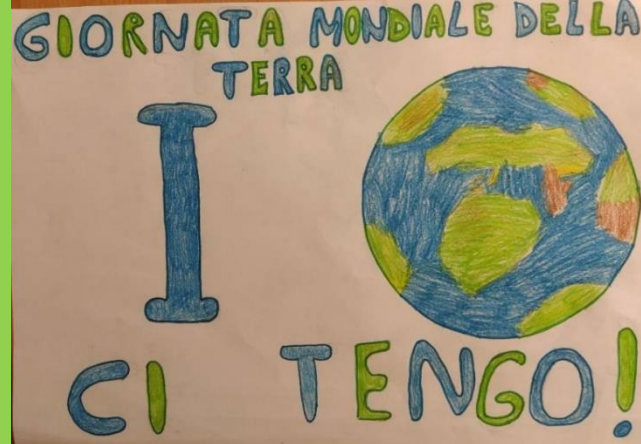 GIORNATA MONDIALE DELLA
TERRA
I
CI TENGO!